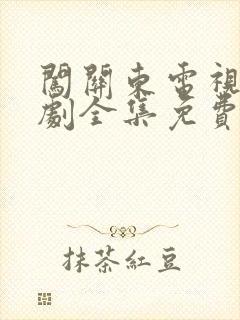 闖關東電視
劇全集免費
抹茶紅豆